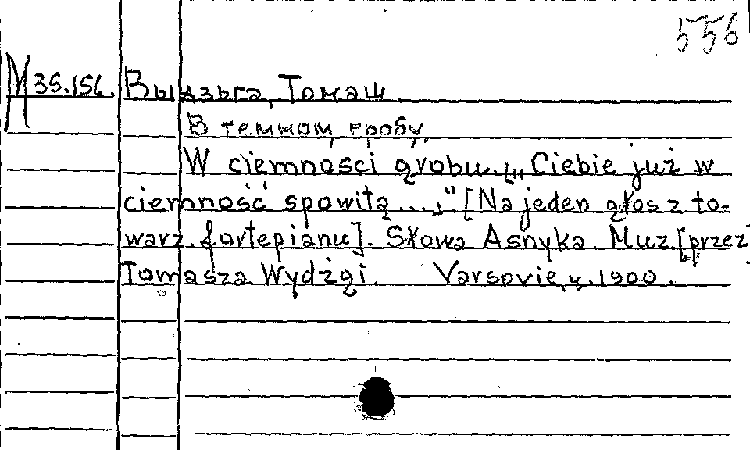 556
М 35.156. Выдзьга, Томаш
В темном гробу
W ciemnosci grobu... „Ciebie już w
ciemność spowitą ..." [Na jeden głos z to-
warz. fortepianu]. Słowa Asnyka. Muz. [przez]
Tomasza Wydżgi. Varsovie, 1900.